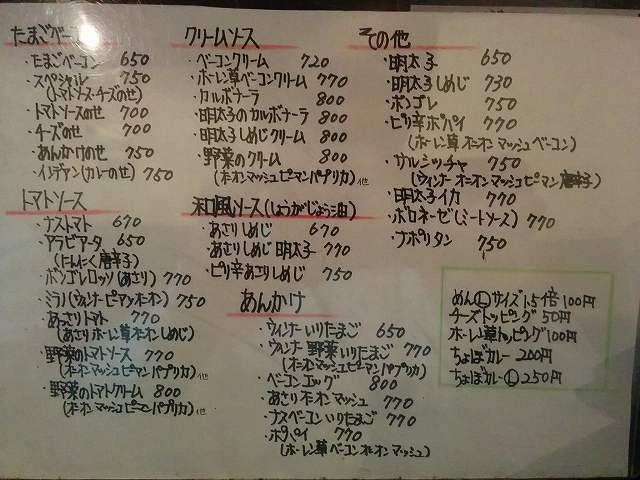 たまごベーコン
・たまごベーコン 650
・スペシャル 750
(トマトソース・チーズのせ)
・トマトソースのせ 700
・チーズのせ 700
・あんかけのせ 750
・インデアン(カレーのせ) 750
トマトソース
・ナストマト 670
・アラビアータ 650
(にんにく唐辛子)
・ボンゴレロッソ(あさり) 770
・ミラノ(ウィンナーピーマンオニオン) 750
・あっさりトマト 770
(あさりホーレン草オニオンしめじ)
・野菜のトマトソース 770
(オニオンマッシュピーマンパプリカ)他
・野菜のトマトクリーム 800
(オニオンマッシュピーマンパプリカ)他
クリームソース
・ベーコンクリーム 720
・ホーレン草ベーコンクリーム 770
・カルボナーラ 800
・明太子のカルボナーラ 800
・明太子しめじクリーム 800
・野菜のクリーム 800
(オニオンマッシュピーマンパプリカ)他
和風ソース(しょうがじょう油)
・あさりしめじ 670
・あさりしめじ明太子 770
・ピリ辛あさりしめじ 750
あんかけ
・ウィンナーいりたまご 650
・ウィンナー野菜いりたまご 770
(オニオンマッシュピーマンパプリカ)
・ベーコンエッグ 800
・あさりオニオンマッシュ 770
・ナスベーコンいりたまご 770
・ポパイ 770
(ホーレン草ベーコンオニオンマッシュ)
その他
・明太子 650
・明太子しめじ 730
・ボンゴレ 750
・ピリ辛ポパイ 770
(ホーレン草オニオンマッシュベーコン)
・サルシッチャ 750
(ウィンナーオニオンマッシュピーマン唐辛子)
・明太子イカ 770
・ボロネーゼ(ミートソース) 770
・ナポリタン 750
めんⓁサイズ1.5倍100円
チーズトッピング50円
ホーレン草トッピング100円
ちょぼカレー 200円
ちょぼカレーⓁ250円